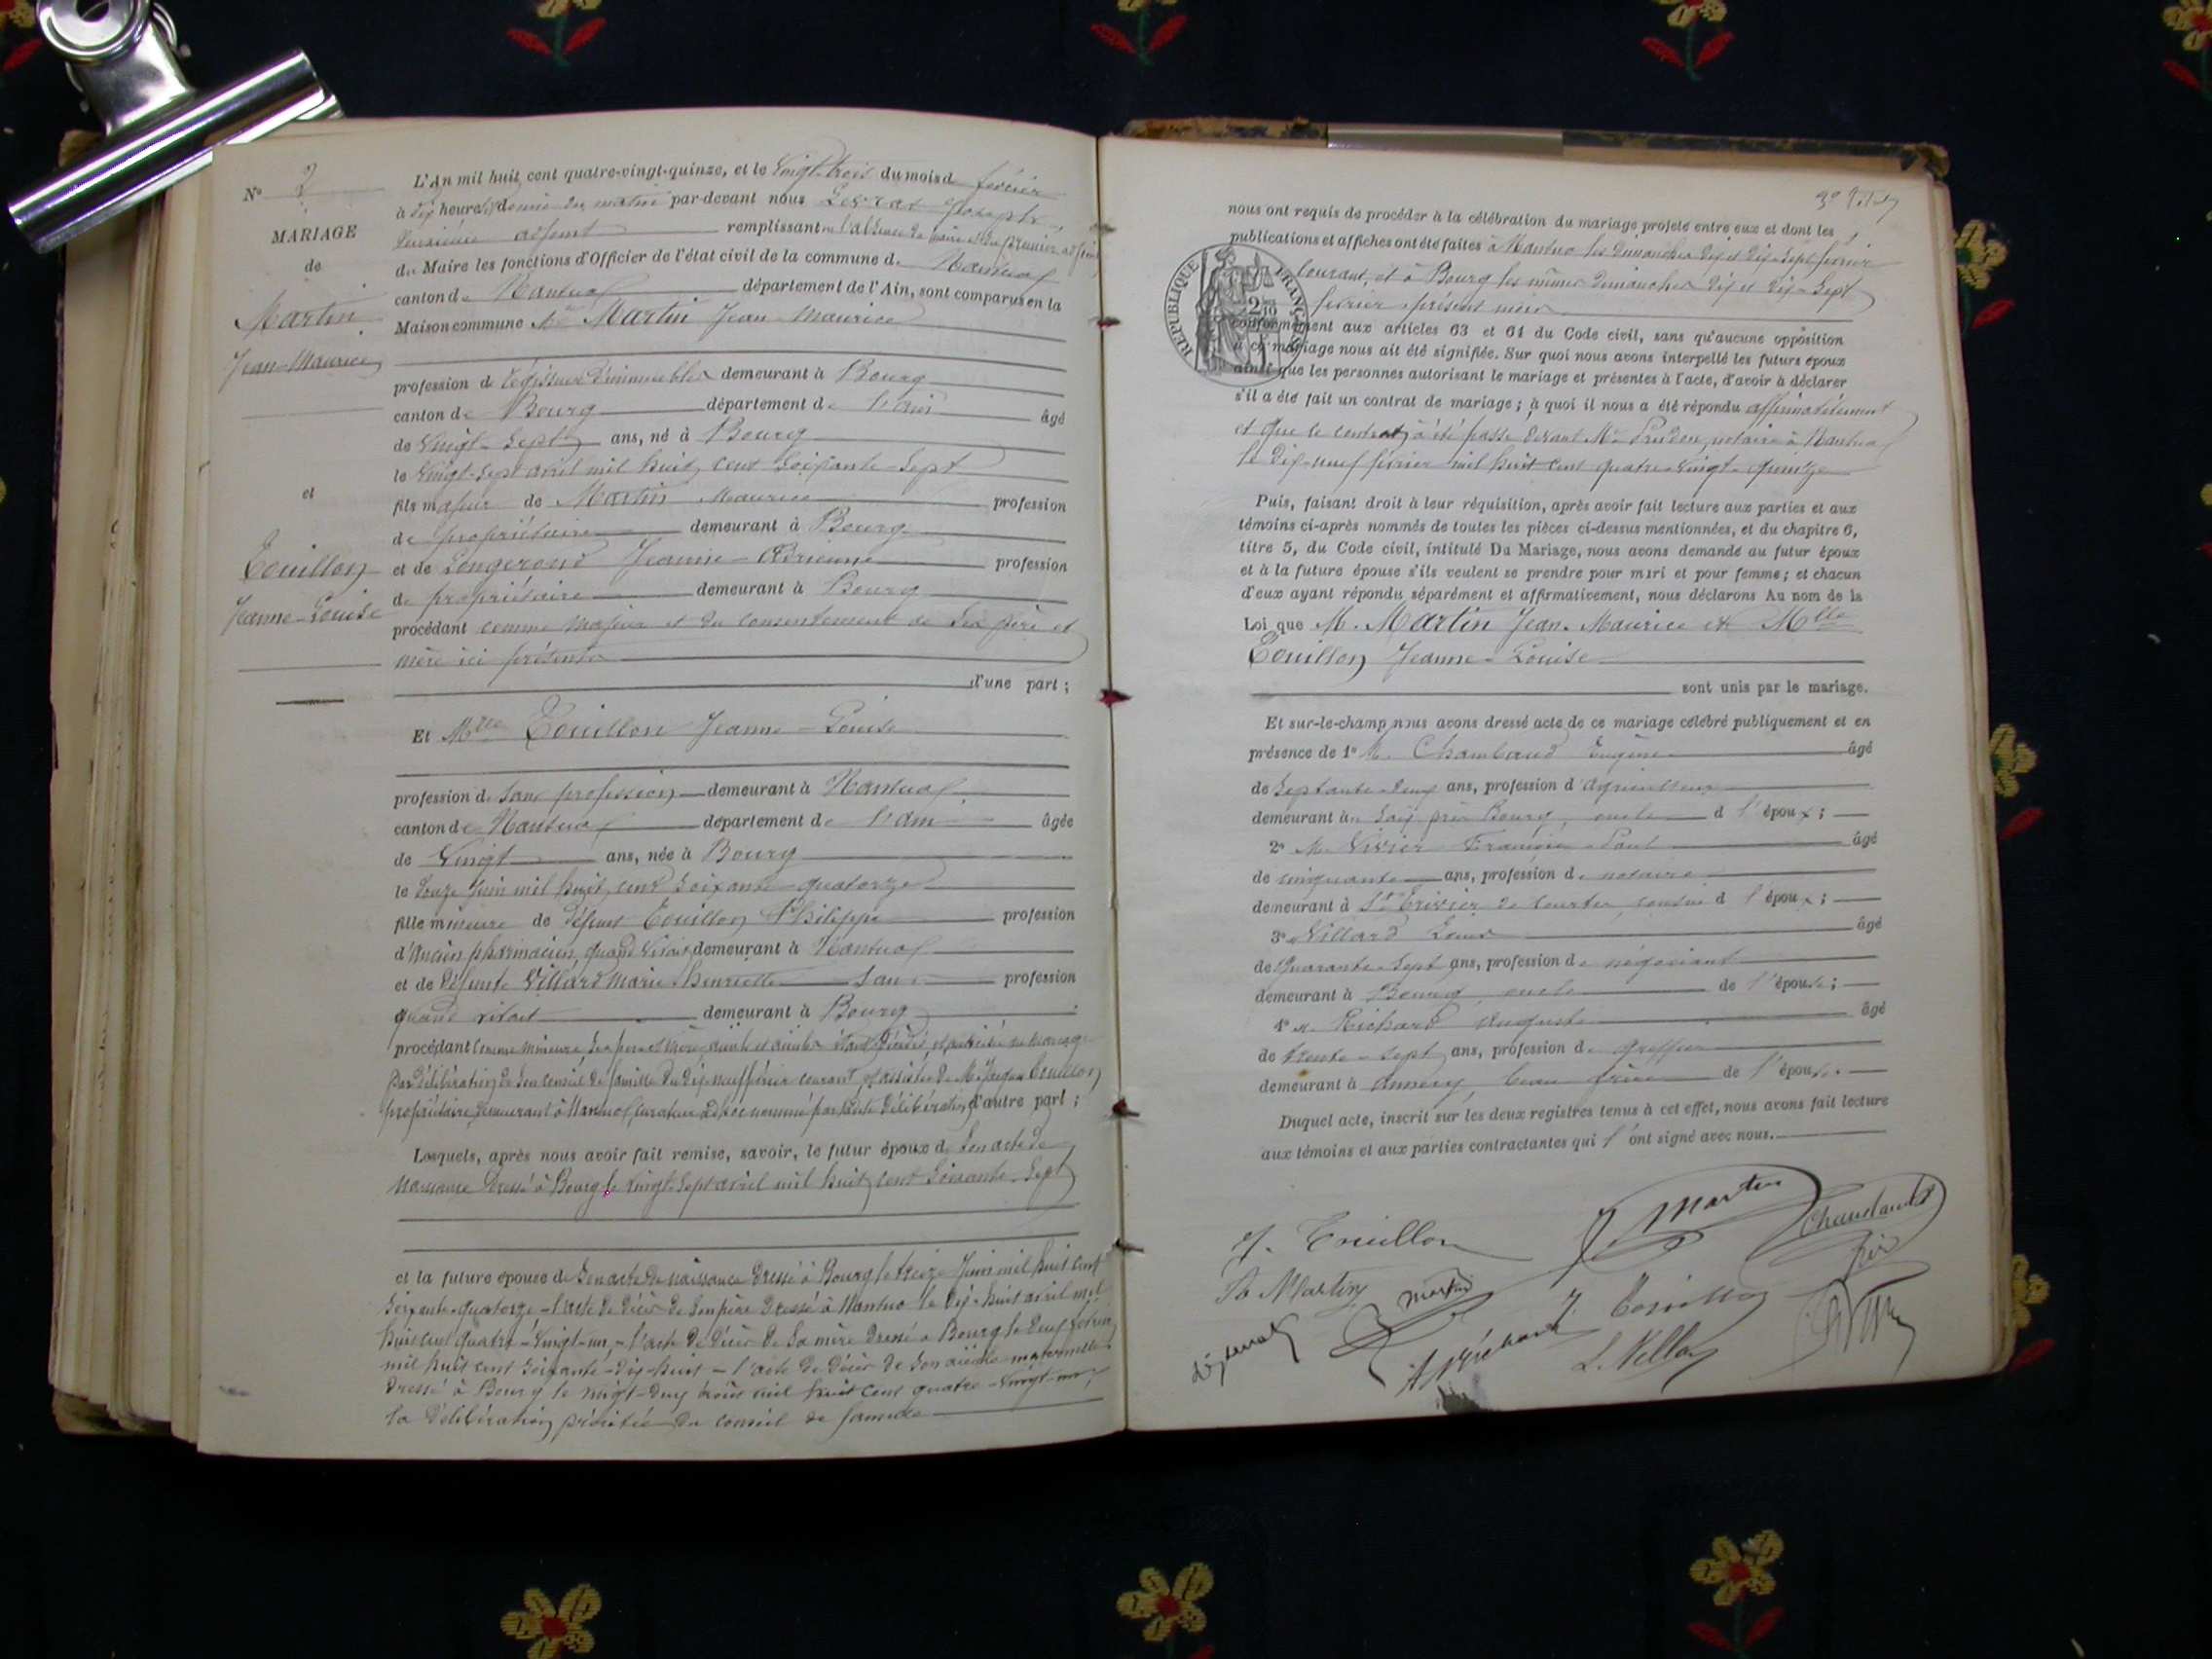 N° 2
MARIAGE
de
Martin
Jean-Maurice
et
Touillon
Jeanne-Louise
L'An mil huit cent quatre-vingt-quinze, et le Vingt-trois du mois d février
à dix heures & demie du matin par-devant nous Levrat Joseph,
deuxième adjoint remplissant en l'absence du maire et du premier adjoint
du Maire les fonctions d'Officier de l'état civil de la commune de Nantua
canton de Nantua département de l'Ain, sont comparus en la
Maison commune Mr Martin Jean Maurice
profession de régisseur d'immeubles demeurant à Bourg
canton de Bourg département de l'ain âgé
de Vingt-Sept ans, né à Bourg
le Vingt-Sept avril mil huit cent Soixante-Sept
fils majeur de Martin Maurice profession
de propriétaire demeurant à Bourg
et de Longerond Jeanne-Adrienne profession
de propriétaire demeurant à Bourg
procédant comme majeur et du consentement de Ses père et
mère ici présents
d'une part ;
Et Mlle Touillon Jeanne-Louise
profession de Sans profession demeurant à Nantua
canton de Nantua département de l'ain âgée
de Vingt ans, née à Bourg
le douze juin mil huit cent Soixante-quatorze
fille mineure de défunt Touillon Philippe profession
d'Ancien pharmacien, quand vivait demeurant à Nantua
et de défunte Villard Marie Henriette Sans profession
quand vivait demeurant à Bourg
procédant comme mineure, Ses père et mère aïeuls et aïeules étant décédés, et autorisée au mariage
par délibération de Son conseil de famille du dix-neuf février courant, et assistée de M. Touillon
propriétaire demeurant à Nantua, curateur ad hoc nommé par ladite délibération d'autre part ;
Lesquels, après nous avoir fait remise, savoir, le futur époux de Son acte de
naissance dressé à Bourg le vingt-Sept avril mil huit cent Soixante-Sept
et la future épouse de Son acte de naissance dressé à Bourg le treize Juin mil huit cent
Soixante-quatorze - l'acte de décès de Son père dressé à Nantua le dix-huit avril mil
huit cent quatre-Vingt-un, - l'acte de décès de Sa mère dressé à Bourg le deux février
mil huit cent Soixante-dix-huit - l'acte de décès de Son aïeule maternelle
dressé à Bourg le vingt-deux août mil huit cent quatre-Vingt-un,
la délibération précitée du conseil de famille
nous ont requis de procéder à la célébration du mariage projeté entre eux et dont les
publications et affiches ont été faites à Nantua les Dimanches dix et dix-Sept février
courant, et à Bourg les mêmes dimanches dix et dix-Sept
février présent mois
REPUBLIQUE FRANÇAISE
conformément aux articles 63 et 64 du Code civil, sans qu'aucune opposition
à ce mariage nous ait été signifiée. Sur quoi nous avons interpellé les futurs époux
ainsi que les personnes autorisant le mariage et présentes à l'acte, d'avoir à déclarer
s'il a été fait un contrat de mariage ; à quoi il nous a été répondu affirmativement
et que le contrat a été passé devant Me Prudon, notaire à Nantua
le dix-neuf février mil huit cent quatre-Vingt-quinze
Puis, faisant droit à leur réquisition, après avoir fait lecture aux parties et aux
témoins ci-après nommés de toutes les pièces ci-dessus mentionnées, et du chapitre 6,
titre 5, du Code civil, intitulé Du Mariage, nous avons demandé au futur époux
et à la future épouse s'ils veulent se prendre pour mari et pour femme ; et chacun
d'eux ayant répondu séparément et affirmativement, nous déclarons Au nom de la
Loi que M. Martin Jean-Maurice et Mlle
Touillon Jeanne-Louise
sont unis par le mariage.
Et sur-le-champ nous avons dressé acte de ce mariage célébré publiquement et en
présence de 1° M. Chambaud Eugène âgé
de Septante-deux ans, profession d'Agriculteur
demeurant à près Bourg, oncle d l'époux ;
2° M. Vivier François-Paul âgé
de cinquante ans, profession de notaire
demeurant à St Trivier de Courtes, cousin d l'époux ;
3° Villard Louis âgé
de Quarante-Sept ans, profession de négociant
demeurant à Bourg, oncle de l'épouse ;
4° M. Richard Auguste âgé
de trente-Sept ans, profession de greffier
demeurant à Annecy, beau frère de l'épouse.
Duquel acte, inscrit sur les deux registres tenus à cet effet, nous avons fait lecture
aux témoins et aux parties contractantes qui l'ont signé avec nous.
J. Touillon
J Martin
Chambaud
Martin
Martin
J. Touillon
A Richard
L. Villard